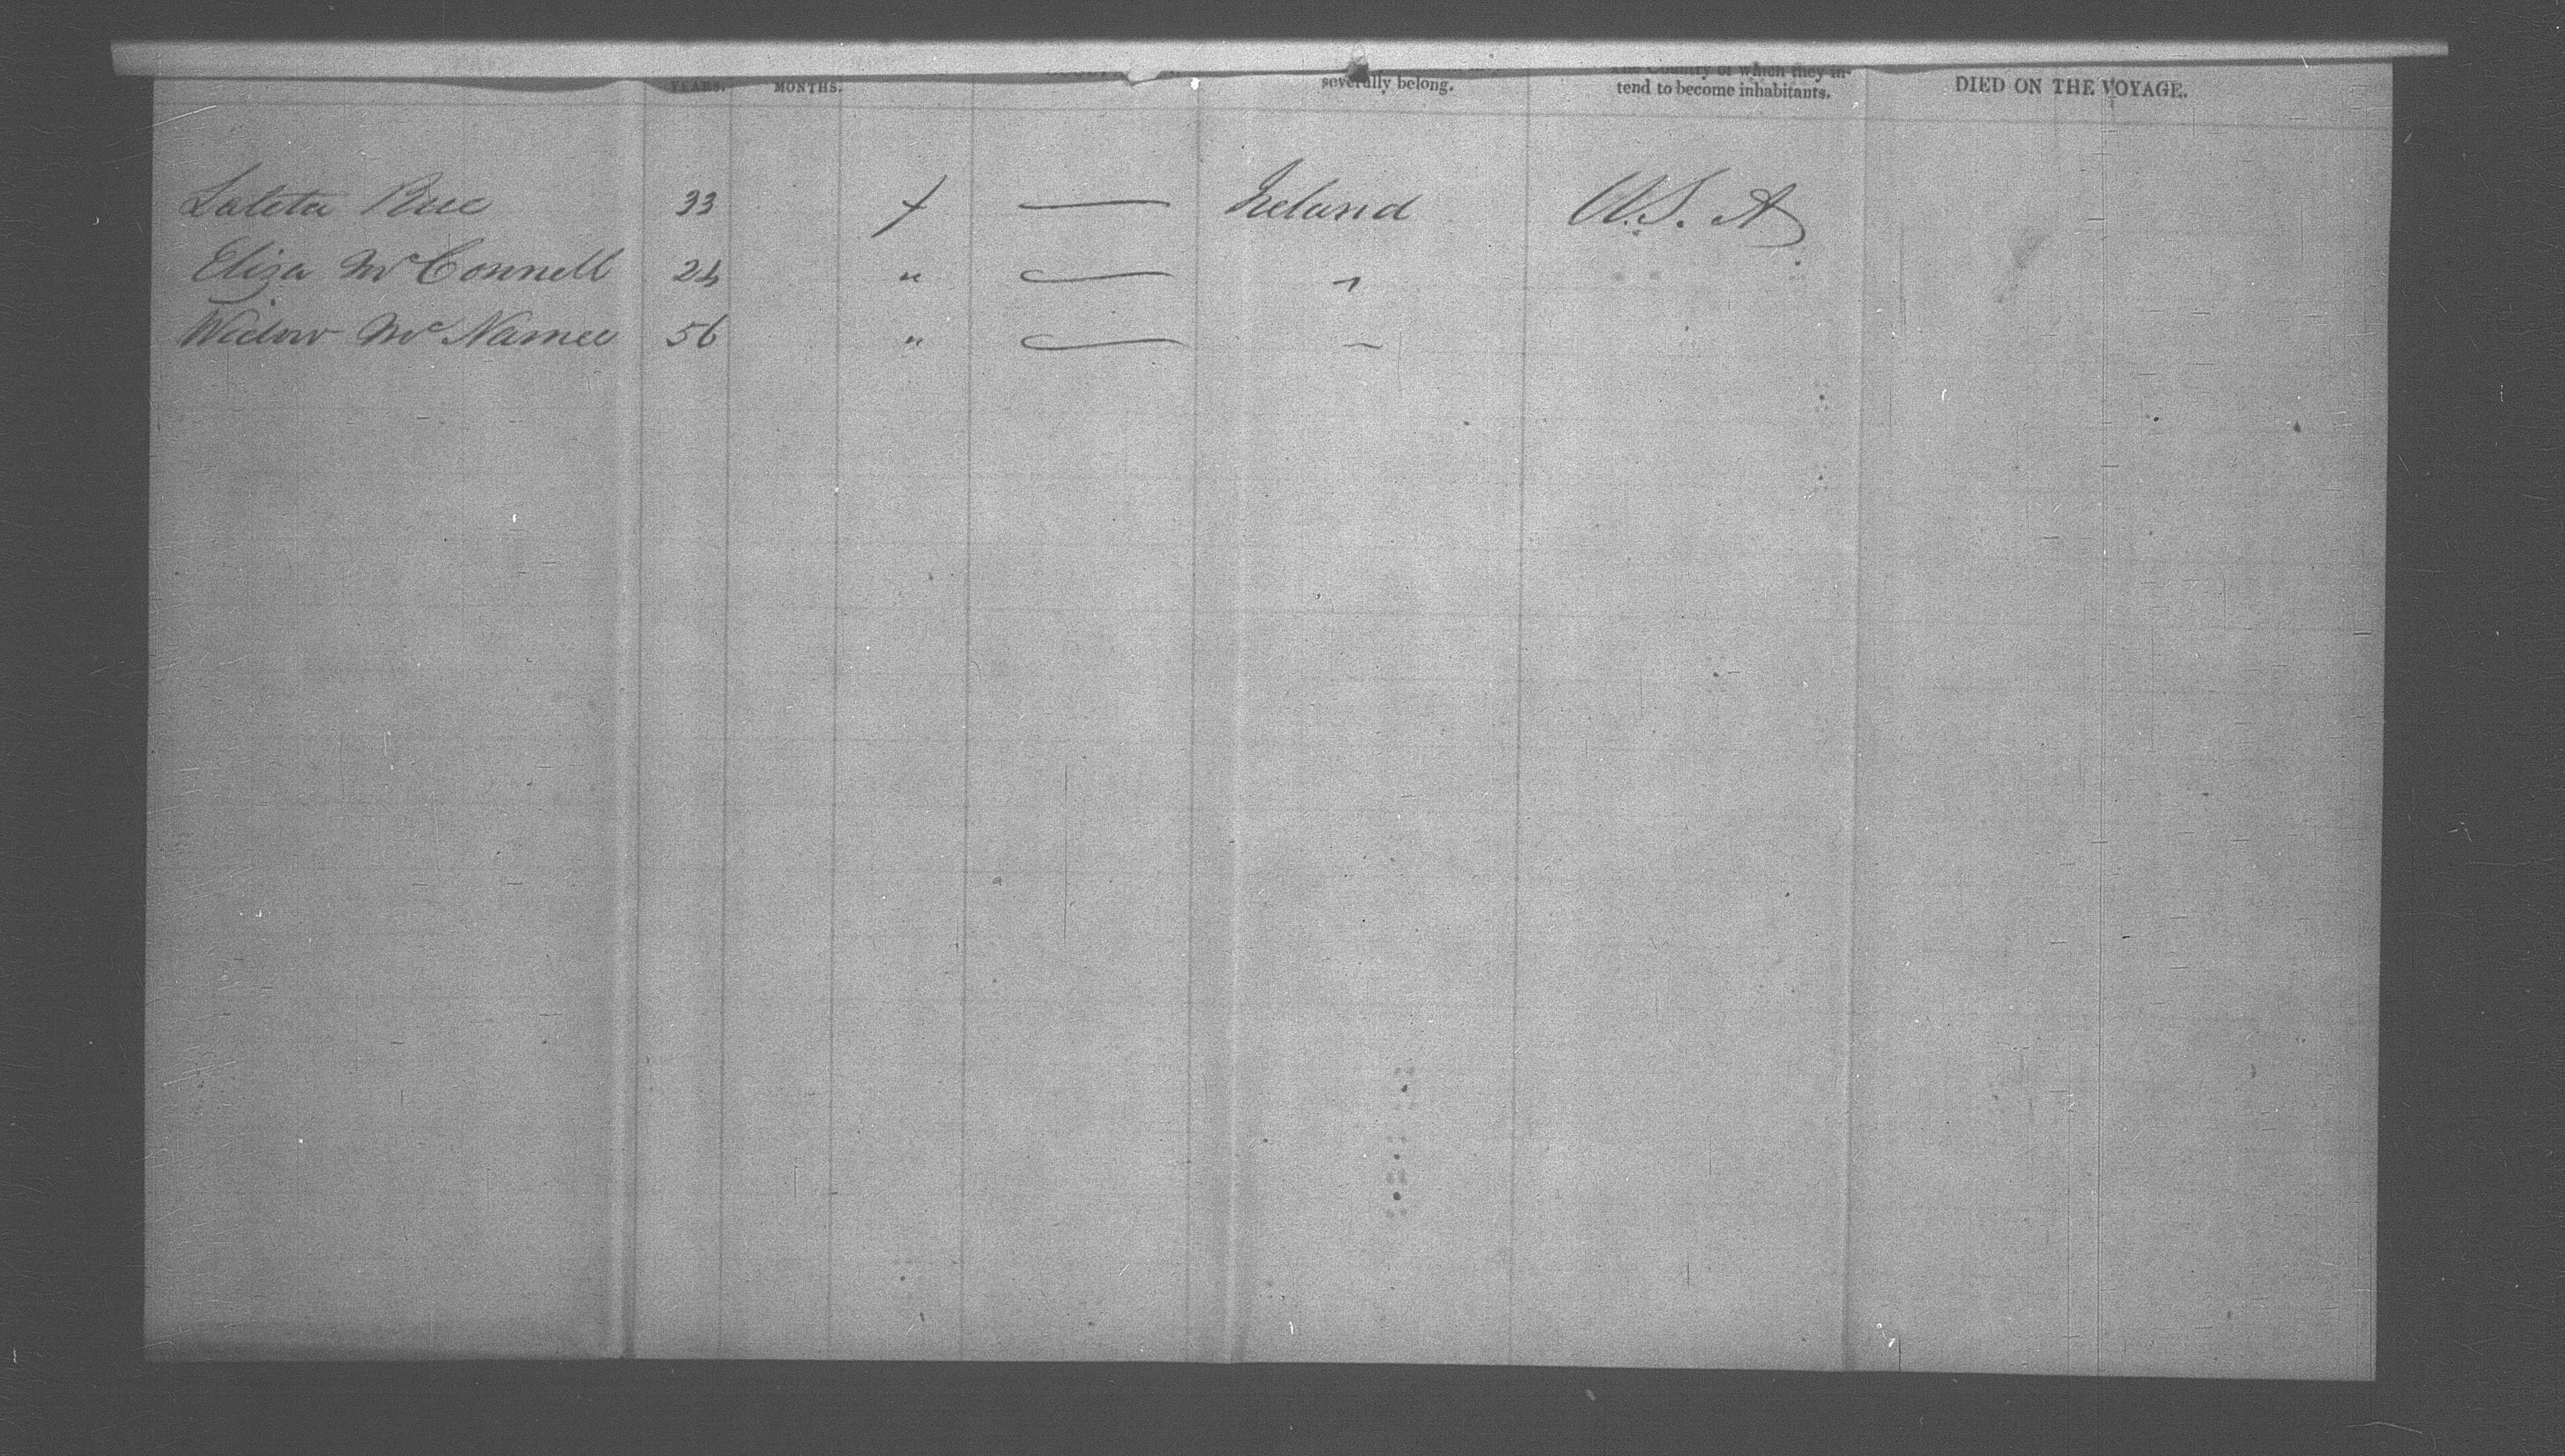 YEARS. MONTHS. severally belong. The Country of which they in-
tend to become inhabitants. DIED ON THE VOYAGE.
33 f — Ireland U.S. A
Eliza McConnell 24 " — "
Widow McNamee 56 " — "